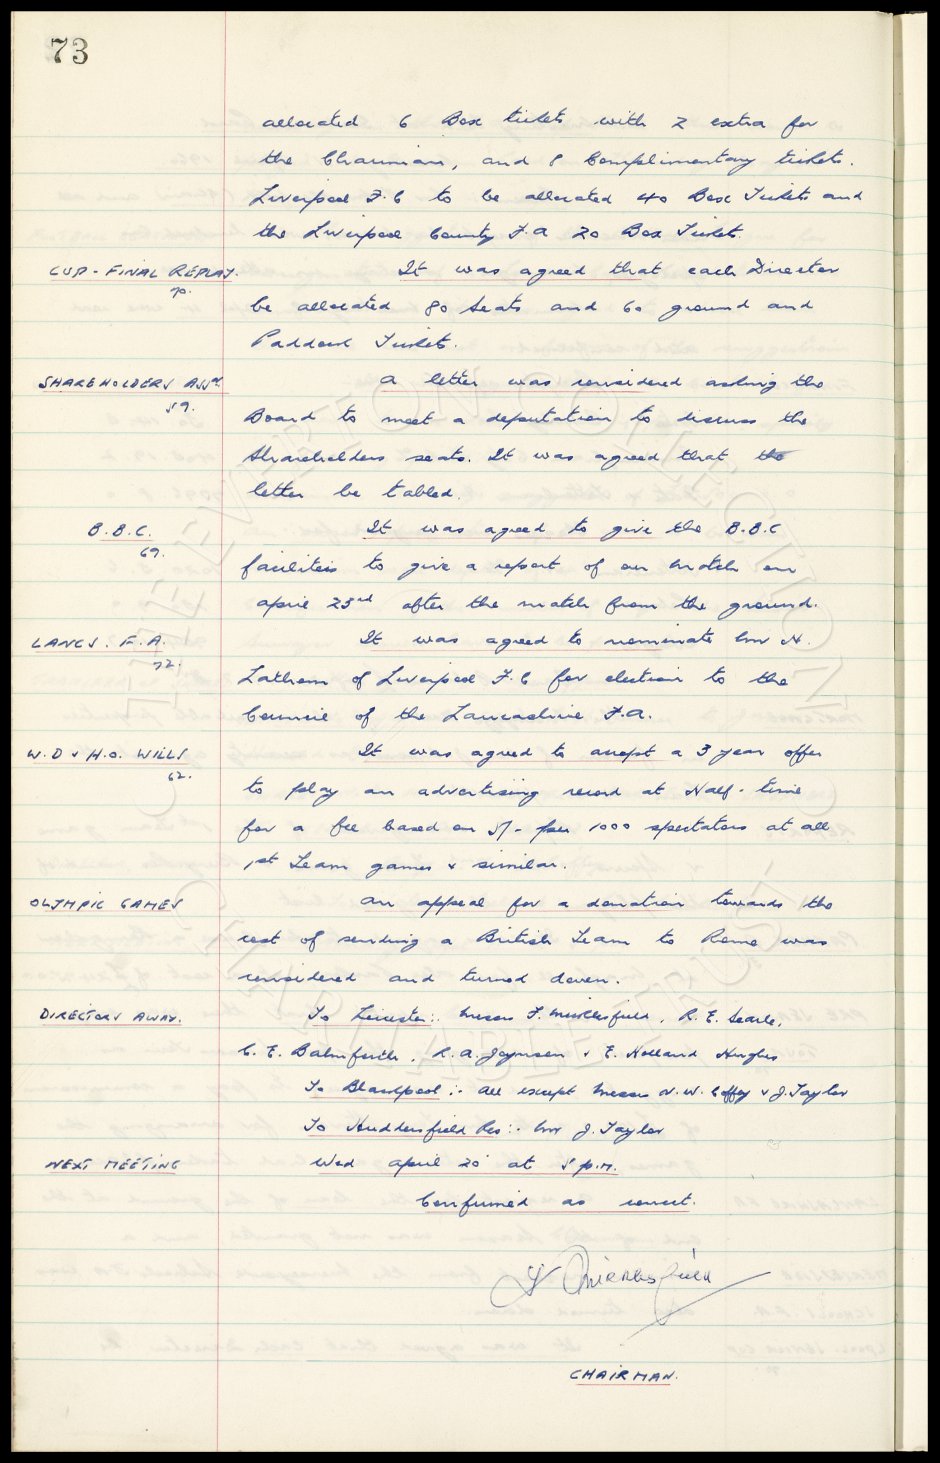 73
allocated 6 Box tickets with 2 extra for
the Chairman, and 8 Complimentary tickets.
Liverpool F.C to be allocated 40 Box Tickets and
the Liverpool County F.A 20 Box Tickets.
CUP-FINAL REPLAY. It was agreed that each Director
70.
be allocated 80 Seats and 60 ground and
Paddock Tickets.
SHAREHOLDERS ASSN. A letter was considered asking the
59.
Board to meet a deputation to discuss the
Shareholders seats. It was agreed that the
letter be tabled.
B.B.C. It was agreed to give the B.B.C
69.
facilities to give a report of our match on
April 23rd after the match from the ground.
LANCS. F.A. It was agreed to nominate Mr N.
72.
Latham of Liverpool F.C for election to the
Council of the Lancashire F.A.
W.D & H.O. WILLS It was agreed to accept a 3 year offer
62.
to play an advertising record at Half-time
for a fee based on 5/- per 1000 spectators at all
1st Team games & similar.
OLYMPIC GAMES An appeal for a donation towards the
cost of sending a British Team to Rome was
considered and turned down.
DIRECTORS AWAY. To Leicester:. Messrs F. Micklesfield, R.E. Searle,
C.E. Balmforth, R.A. Joynson & E. Holland Hughes
To Blackpool:- All except Messrs N.W. Coffey & J. Taylor
To Huddersfield Res:. Mr J. Taylor
NEXT MEETING Wed April 20 at 5 p.m.
Confirmed as correct.
F Micklesfield
CHAIRMAN.